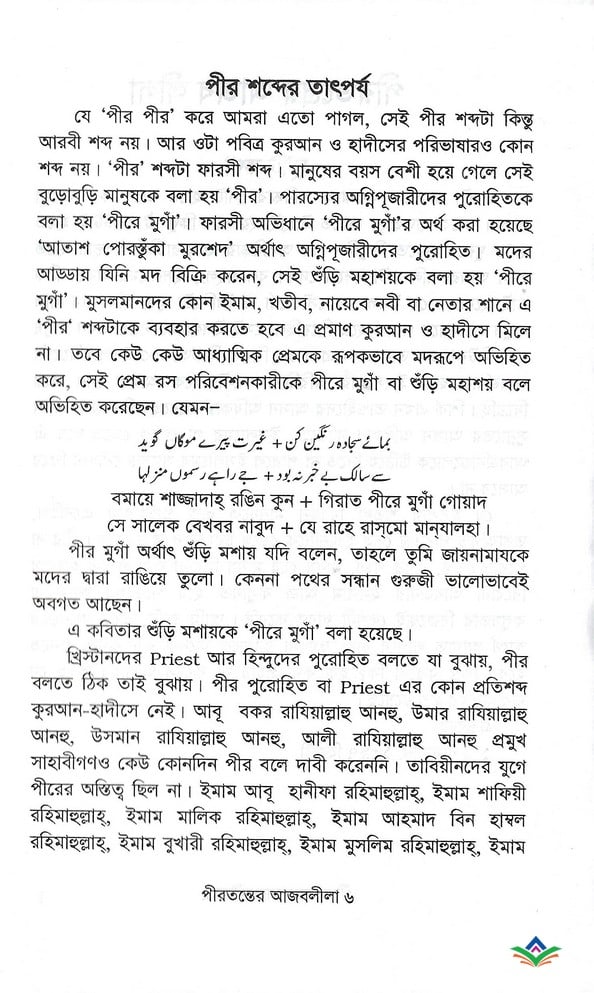 পীর শব্দের তাৎপর্য
যে ‘পীর পীর’ করে আমরা এতো পাগল, সেই পীর শব্দটা কিন্তু
আরবী শব্দ নয়। আর ওটা পবিত্র কুরআন ও হাদীসের পরিভাষারও কোন
শব্দ নয়। ‘পীর’ শব্দটা ফারসী শব্দ। মানুষের বয়স বেশী হয়ে গেলে সেই
বুড়োবুড়ি মানুষকে বলা হয় ‘পীর’। পারস্যের অগ্নিপূজারীদের পুরোহিতকে
বলা হয় ‘পীরে মুগাঁ’। ফারসী অভিধানে ‘পীরে মুগাঁ’র অর্থ করা হয়েছে
‘আতাশ পোরস্তুঁকা মুরশেদ’ অর্থাৎ অগ্নিপূজারীদের পুরোহিত। মদের
আড্ডায় যিনি মদ বিক্রি করেন, সেই শুঁড়ি মহাশয়কে বলা হয় ‘পীরে
মুগাঁ’। মুসলমানদের কোন ইমাম, খতীব, নায়েবে নবী বা নেতার শানে এ
‘পীর’ শব্দটাকে ব্যবহার করতে হবে এ প্রমাণ কুরআন ও হাদীসে মিলে
না। তবে কেউ কেউ আধ্যাত্মিক প্রেমকে রূপকভাবে মদরূপে অভিহিত
করে, সেই প্রেম রস পরিবেশনকারীকে পীরে মুগাঁ বা শুঁড়ি মহাশয় বলে
অভিহিত করেছেন। যেমন–
بمائے سجادہ رنگین کن + غیرت پیرے موگاں گوید
سے سالک بے خبر نہ بود + جے راہے رسموں منزلہا
বমায়ে শাজ্জাদাহ্ রঙিন কুন + গিরাত পীরে মুগাঁ গোয়াদ
সে সালেক বেখবর নাবুদ + যে রাহে রাসমো মান্‌যালহা।
পীর মুগাঁ অর্থাৎ শুঁড়ি মশায় যদি বলেন, তাহলে তুমি জায়নামাযকে
মদের দ্বারা রাঙিয়ে তুলো। কেননা পথের সন্ধান গুরুজী ভালোভাবেই
অবগত আছেন।
এ কবিতার শুঁড়ি মশায়কে ‘পীরে মুগাঁ’ বলা হয়েছে।
খ্রিস্টানদের Priest আর হিন্দুদের পুরোহিত বলতে যা বুঝায়, পীর
বলতে ঠিক তাই বুঝায়। পীর পুরোহিত বা Priest এর কোন প্রতিশব্দ
কুরআন-হাদীসে নেই। আবূ বকর রাযিয়াল্লাহু আনহু, উমার রাযিয়াল্লাহু
আনহু, উসমান রাযিয়াল্লাহু আনহু, আলী রাযিয়াল্লাহু আনহু প্রমুখ
সাহাবীগণও কেউ কোনদিন পীর বলে দাবী করেননি। তাবিয়ীনদের যুগে
পীরের অস্তিত্ব ছিল না। ইমাম আবূ হানীফা রহিমাহুল্লাহ্, ইমাম শাফিয়ী
রহিমাহুল্লাহ্, ইমাম মালিক রহিমাহুল্লাহ্, ইমাম আহমাদ বিন হাম্বল
রহিমাহুল্লাহ্, ইমাম বুখারী রহিমাহুল্লাহ্, ইমাম মুসলিম রহিমাহুল্লাহ্, ইমাম
পীরতন্তের আজবলীলা ৬